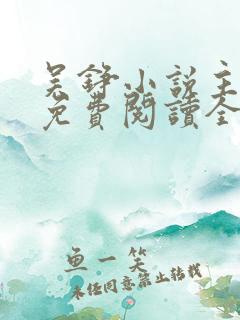 吴铮小说主
免費閱讀全
鱼一笑
未经同意禁止转载